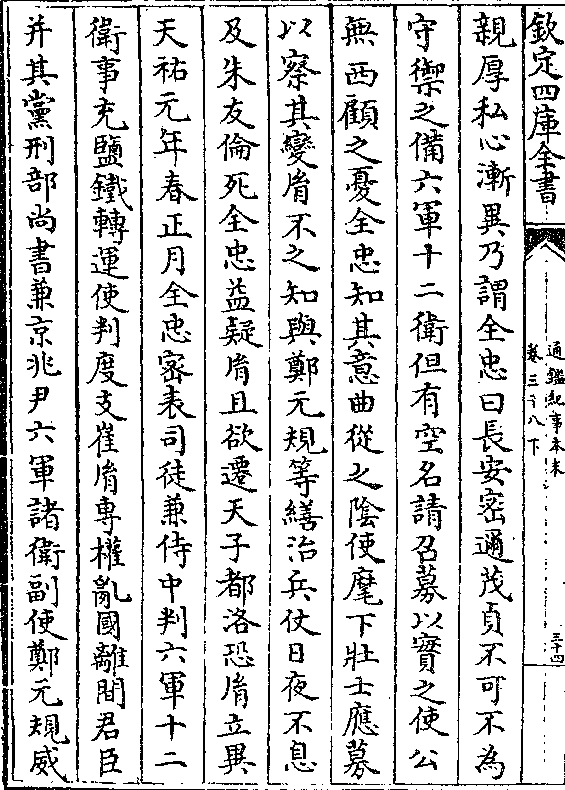 欽定四庫全書
通鑑紀事本末
卷三十八下
三十四
親厚私心漸異乃謂全忠曰長安密邇茂貞不可不為
守禦之備六軍十二衛但有空名請召募以實之使公
無西顧之憂全忠知其意曲從之陰使麾下壯士應募
以察其變胤不之知與鄭元規等繕治兵仗日夜不息
及朱友倫死全忠益疑胤且欲遷天子都洛恐胤立異
天祐元年春正月全忠密表司徒兼侍中判六軍十二
衛事充鹽鐵轉運使判度支崔胤專權亂國離間君臣
并其黨刑部尚書兼京兆尹六軍諸衛副使鄭元規威